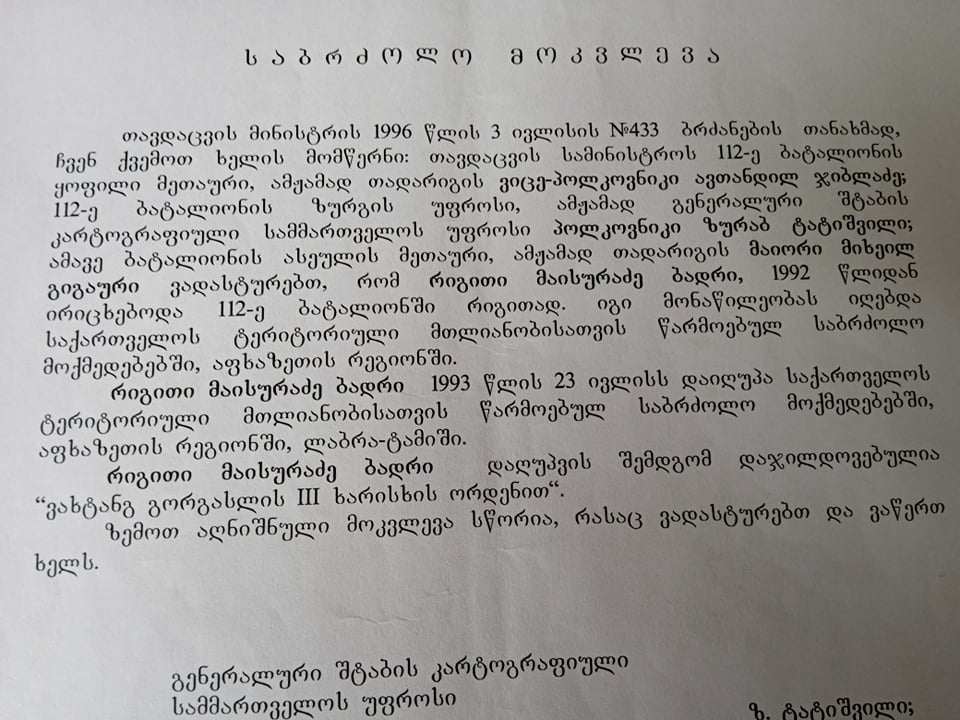 ს ა ბ რ ძ ო ლ ო მ ო კ ვ ლ ე ვ ა
თავდაცვის მინისტრის 1996 წლის 3 ივლისის №433 ბრძანების თანახმად,
ჩვენ ქვემოთ ხელის მომწერნი: თავდაცვის სამინისტროს 112-ე ბატალიონის
ყოფილი მეთაური, ამჟამად თადარიგის ვიცე-პოლკოვნიკი ავთანდილ ჯიბლაძე;
112-ე ბატალიონის ზურგის უფროსი, ამჟამად გენერალური შტაბის
კარტოგრაფიული სამმართველოს უფროსი პოლკოვნიკი ზურაბ ტატიშვილი;
ამავე ბატალიონის ასეულის მეთაური, ამჟამად თადარიგის მაიორი მიხეილ
გიგაური ვადასტურებთ, რომ რიგითი მაისურაძე ბადრი, 1992 წლიდან
ირიცხებოდა 112-ე ბატალიონში რიგითად. იგი მონაწილეობას იღებდა
საქართველოს ტერიტორიული მთლიანობისათვის წარმოებულ საბრძოლო
მოქმედებებში, აფხაზეთის რეგიონში.
რიგითი მაისურაძე ბადრი 1993 წლის 23 ივლისს დაიღუპა საქართველოს
ტერიტორიული მთლიანობისათვის წარმოებულ საბრძოლო მოქმედებებში,
აფხაზეთის რეგიონში, ლაბრა-ტამიში.
რიგითი მაისურაძე ბადრი დაღუპვის შემდგომ დაჯილდოვებულია
“ვახტანგ გორგასლის III ხარისხის ორდენით“.
ზემოთ აღნიშნული მოკვლევა სწორია, რასაც ვადასტურებთ და ვაწერთ
ხელს.
გენერალური შტაბის კარტოგრაფიული
სამმართველოს უფროსი ზ. ტატიშვილი;